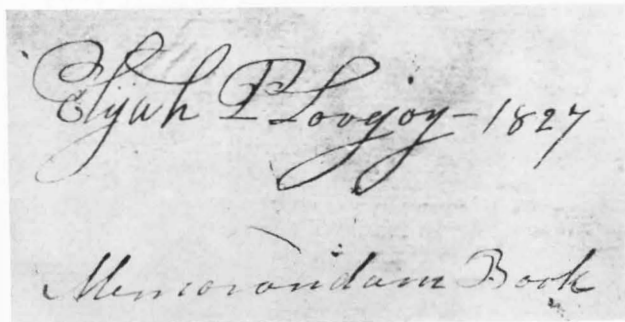 Elijah P Lovejoy - 1827
Memorandum Book